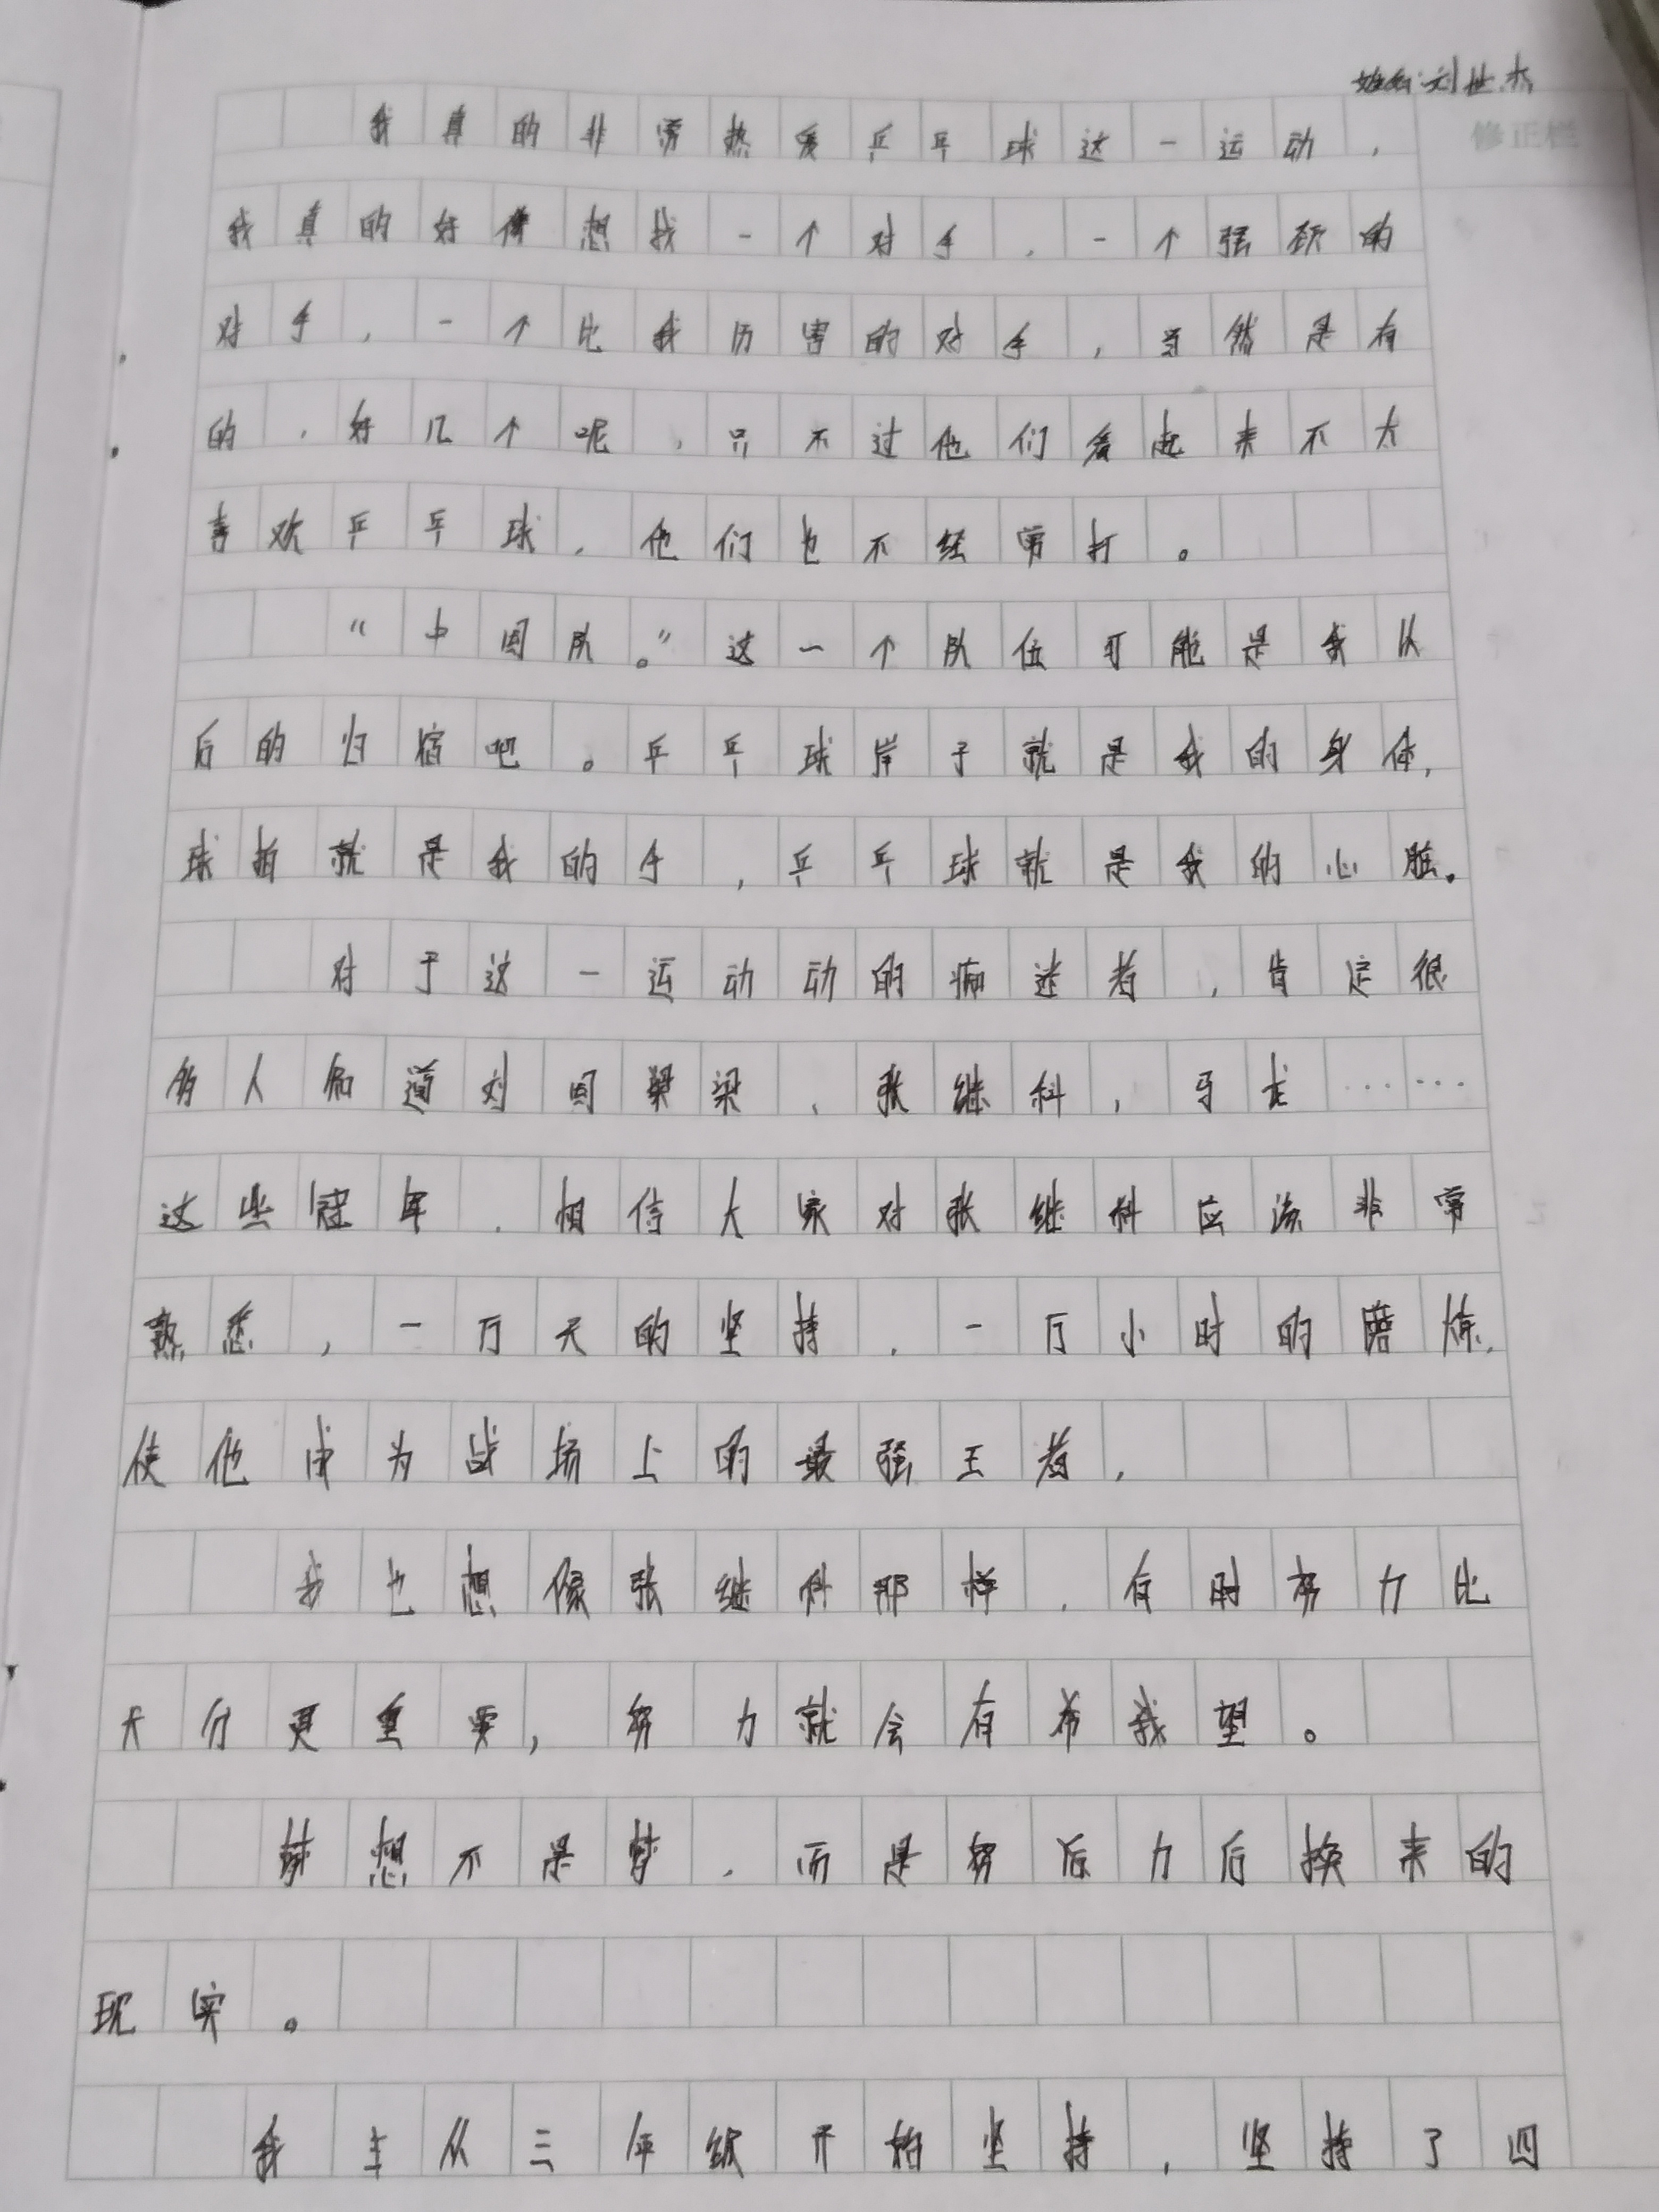 姓名:刘世杰
修正栏
我真的非常热爱乒乓球这一运动,
我真的好像想找一个对手,一个强硕的
对手,一个比我历害的对手,当然是有
的,好几个呢,只不过他们看起来不太
喜欢乒乓球,他们也不经常打。
“中国队。”这一个队伍可能是我以
后的归宿吧。乒乓球岸子就是我的身体,
球拍就是我的手,乒乓球就是我的心脏。
对于这一运动动的痴迷者,肯定很
多人知道刘国梁梁、张继科,马龙……
这些冠军,相信大家对张继科应该非常
熟悉,一万天的坚持,一万小时的磨炼,
使他成为战场上的最强王者,
我也想像张继科那样,有时努力比
天分更重要,努力就会有希我望。
梦想不是梦,而是努后力后换来的
现实。
我从三年级开始坚持,坚持了四